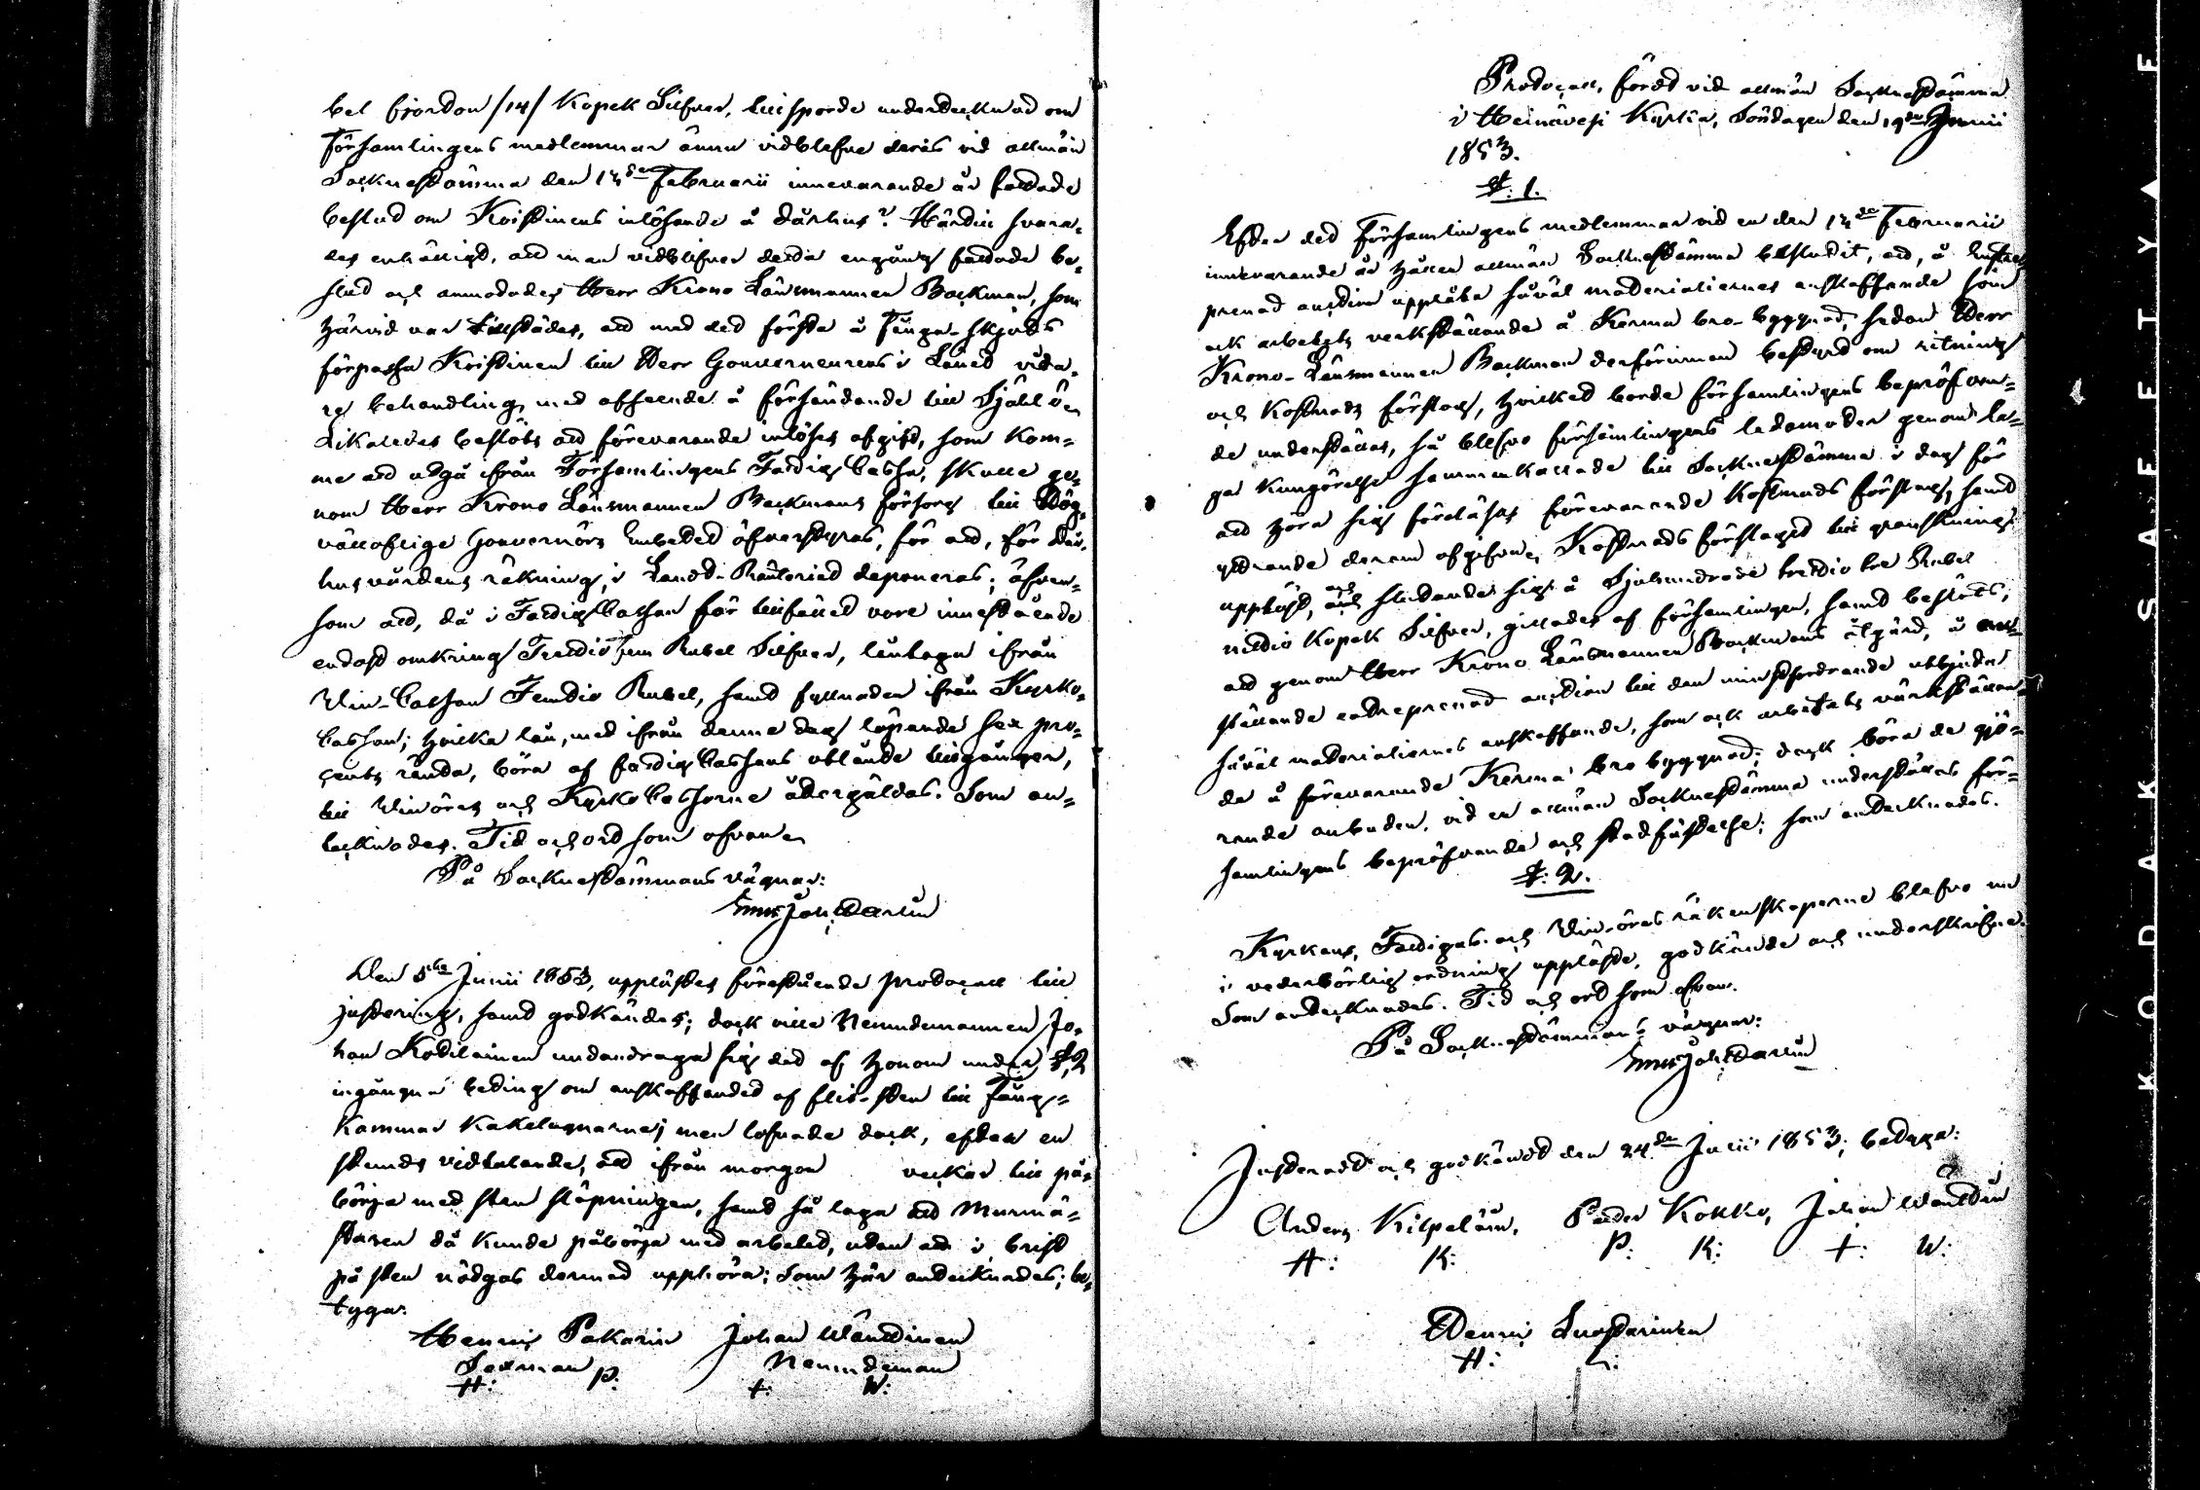 bel fjorton /14/ Kopek Silfver, tillsporde undertecknad om
Församlingens medlemmar ännu vidblefve deras vid allmän
Socknestämma den 13de Februarii innevarande år fattade
beslut om Kristinens inlösande å dårhus? Härtill svara-
des enhälligt, att man vidblifver detta engång fattade be-
slut och anmodades Herr Krono Länsmannen Backman, som
härvid var tillstädes, att med det första å Fånge-skjuts
förpassa Kristinen till Herr Gouverneurens i Länet vida-
re behandling, med afseende å försändande till Själö.
Likaledes beslöts att förevarande inlöses afgift, som kom-
me att utgå ifrån Församlingens Fattig Cassa, skulle ge-
nom Herr Krono Länsmannen Backmans försorg till Hög-
välloflige Gouvernörs Embetet öfverstyras, för att, för dår-
husvårdens räkning, i Landt-Ränteriet deponeras; äfven-
som att, då i Fattig Cassan för tillfället vore innestående
endast omkring Trettiofem Rubel Silfver, låntaga ifrån
Vin-Cassan Femtio Rubel, samt fyllnaden ifrån Kyrko-
Cassan; hvilka lån, med ifrån denna dag löpande sex pro-
cents ränta, böra af fattig Cassans utlånte tillgångar,
till Vinöres och Kyrko Cassorne återgäldas. Som an-
tecknades. Tid och ord som ofvan.
På Socknestämmans vägnar:
Den 5te Junii 1853, upplästes förestående Protocoll till
justering, samt godkändes; dock ville Nemndemannen Jo-
han Kotilainen undandraga sig det af honom under §.2
ingångna beting om anskaffandet af flis-sten till Fång-
Kammar Kakelugnarne; men lofvade dock, efter en
stunds vidtalande, att ifrån morgon veckar till på-
börja med sten släpningen, samt så laga att Murmä-
staren då kunde påbörja med arbetet, utan att i brist
på sten nödgas dermed upphöra; Som här antecknades; be-
tyga:
Henric Pakarin Johan Wänttinen
Sexman Nemndeman
H: P: +: W:
Protocoll, fördt vid allmän Socknestämma
i Heinävesi Kyrka, Söndagen den 19de Junii
1853.
§. 1.
Efter det Församlingens medlemmar vid en den 13de Februarii
innevarande år hållen allmän Socknestämma beslutit, att, å Entre-
prenad auction upplåta såväl materialiernes anskaffande som
ock arbetets verkställande å Kerma bro-byggnad, sedan Herr
Krono-Länsmannen Backman derförinnan bestyrt om ritning
och Kostnads förslag, hvilket borde församlingens bepröfvan-
de underställas, så blefvo församlingens ledamöter genom la-
ga Kungörelse sammankallade till Socknestämma i dag för
att höra sig föreläsas förevarande Kostnads förslag, samt
yttrande derom afgifva, Kostnads förslaget till granskning
uppläst, och slutande sig å Sjuhundrade trettio tre Rubel
nittio Kopek Silfver, gillades af församlingen, samt beslöts,
att genom Herr Krono Länsmannen Backmans åtgärd, å an-
ställande entreprenad auction till den minstfordrande utbjuda
såväl materialiernes anskaffande, som ock arbetets värkställan-
de å förevarande Kerma bro byggnad; dock böra de gjö-
rande anbuden, vid en allmän Socknestämma underställas för-
samlingens bepröfvande och stadfästelse; som antecknades.
§. 2.
Kyrkans, Fattigas och Vinöres räkenskaperne blefvo nu
i vederbörlig ordning uppläste, godkände och underskrifne.
Som antecknades. Tid och ord som ofvan.
På Socknestämmans vägnar:
Justeradt och godkändt den 24de Julii 1853; betyga:
Anders Kilpeläin, Petter Kokko, Johan Wänttin
A: K: P: K: +: W:
Henric Luostarinen
H: L: